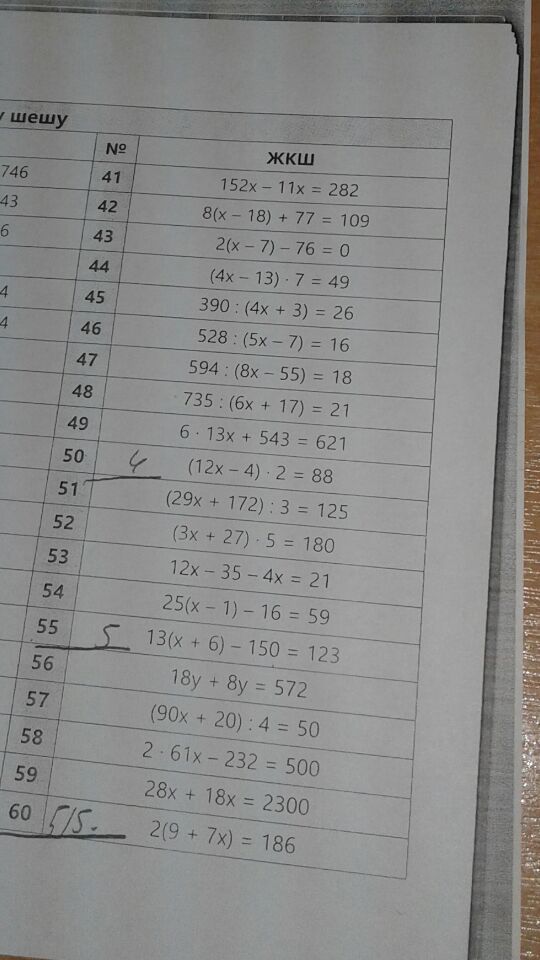 у шешу
№ ЖКШ
746 41 152x – 11x = 282
43 42 8(x – 18) + 77 = 109
6 43 2(x – 7) – 76 = 0
44 (4x – 13) · 7 = 49
4 45 390 : (4x + 3) = 26
4 46 528 : (5x – 7) = 16
47 594 : (8x – 55) = 18
48 735 : (6x + 17) = 21
49 6 · 13x + 543 = 621
50 4 (12x – 4) · 2 = 88
51 (29x + 172) : 3 = 125
52 (3x + 27) · 5 = 180
53 12x – 35 – 4x = 21
54 25(x – 1) – 16 = 59
55 5 13(x + 6) – 150 = 123
56 18y + 8y = 572
57 (90x + 20) : 4 = 50
58 2 · 61x – 232 = 500
59 28x + 18x = 2300
60 5/5. 2(9 + 7x) = 186